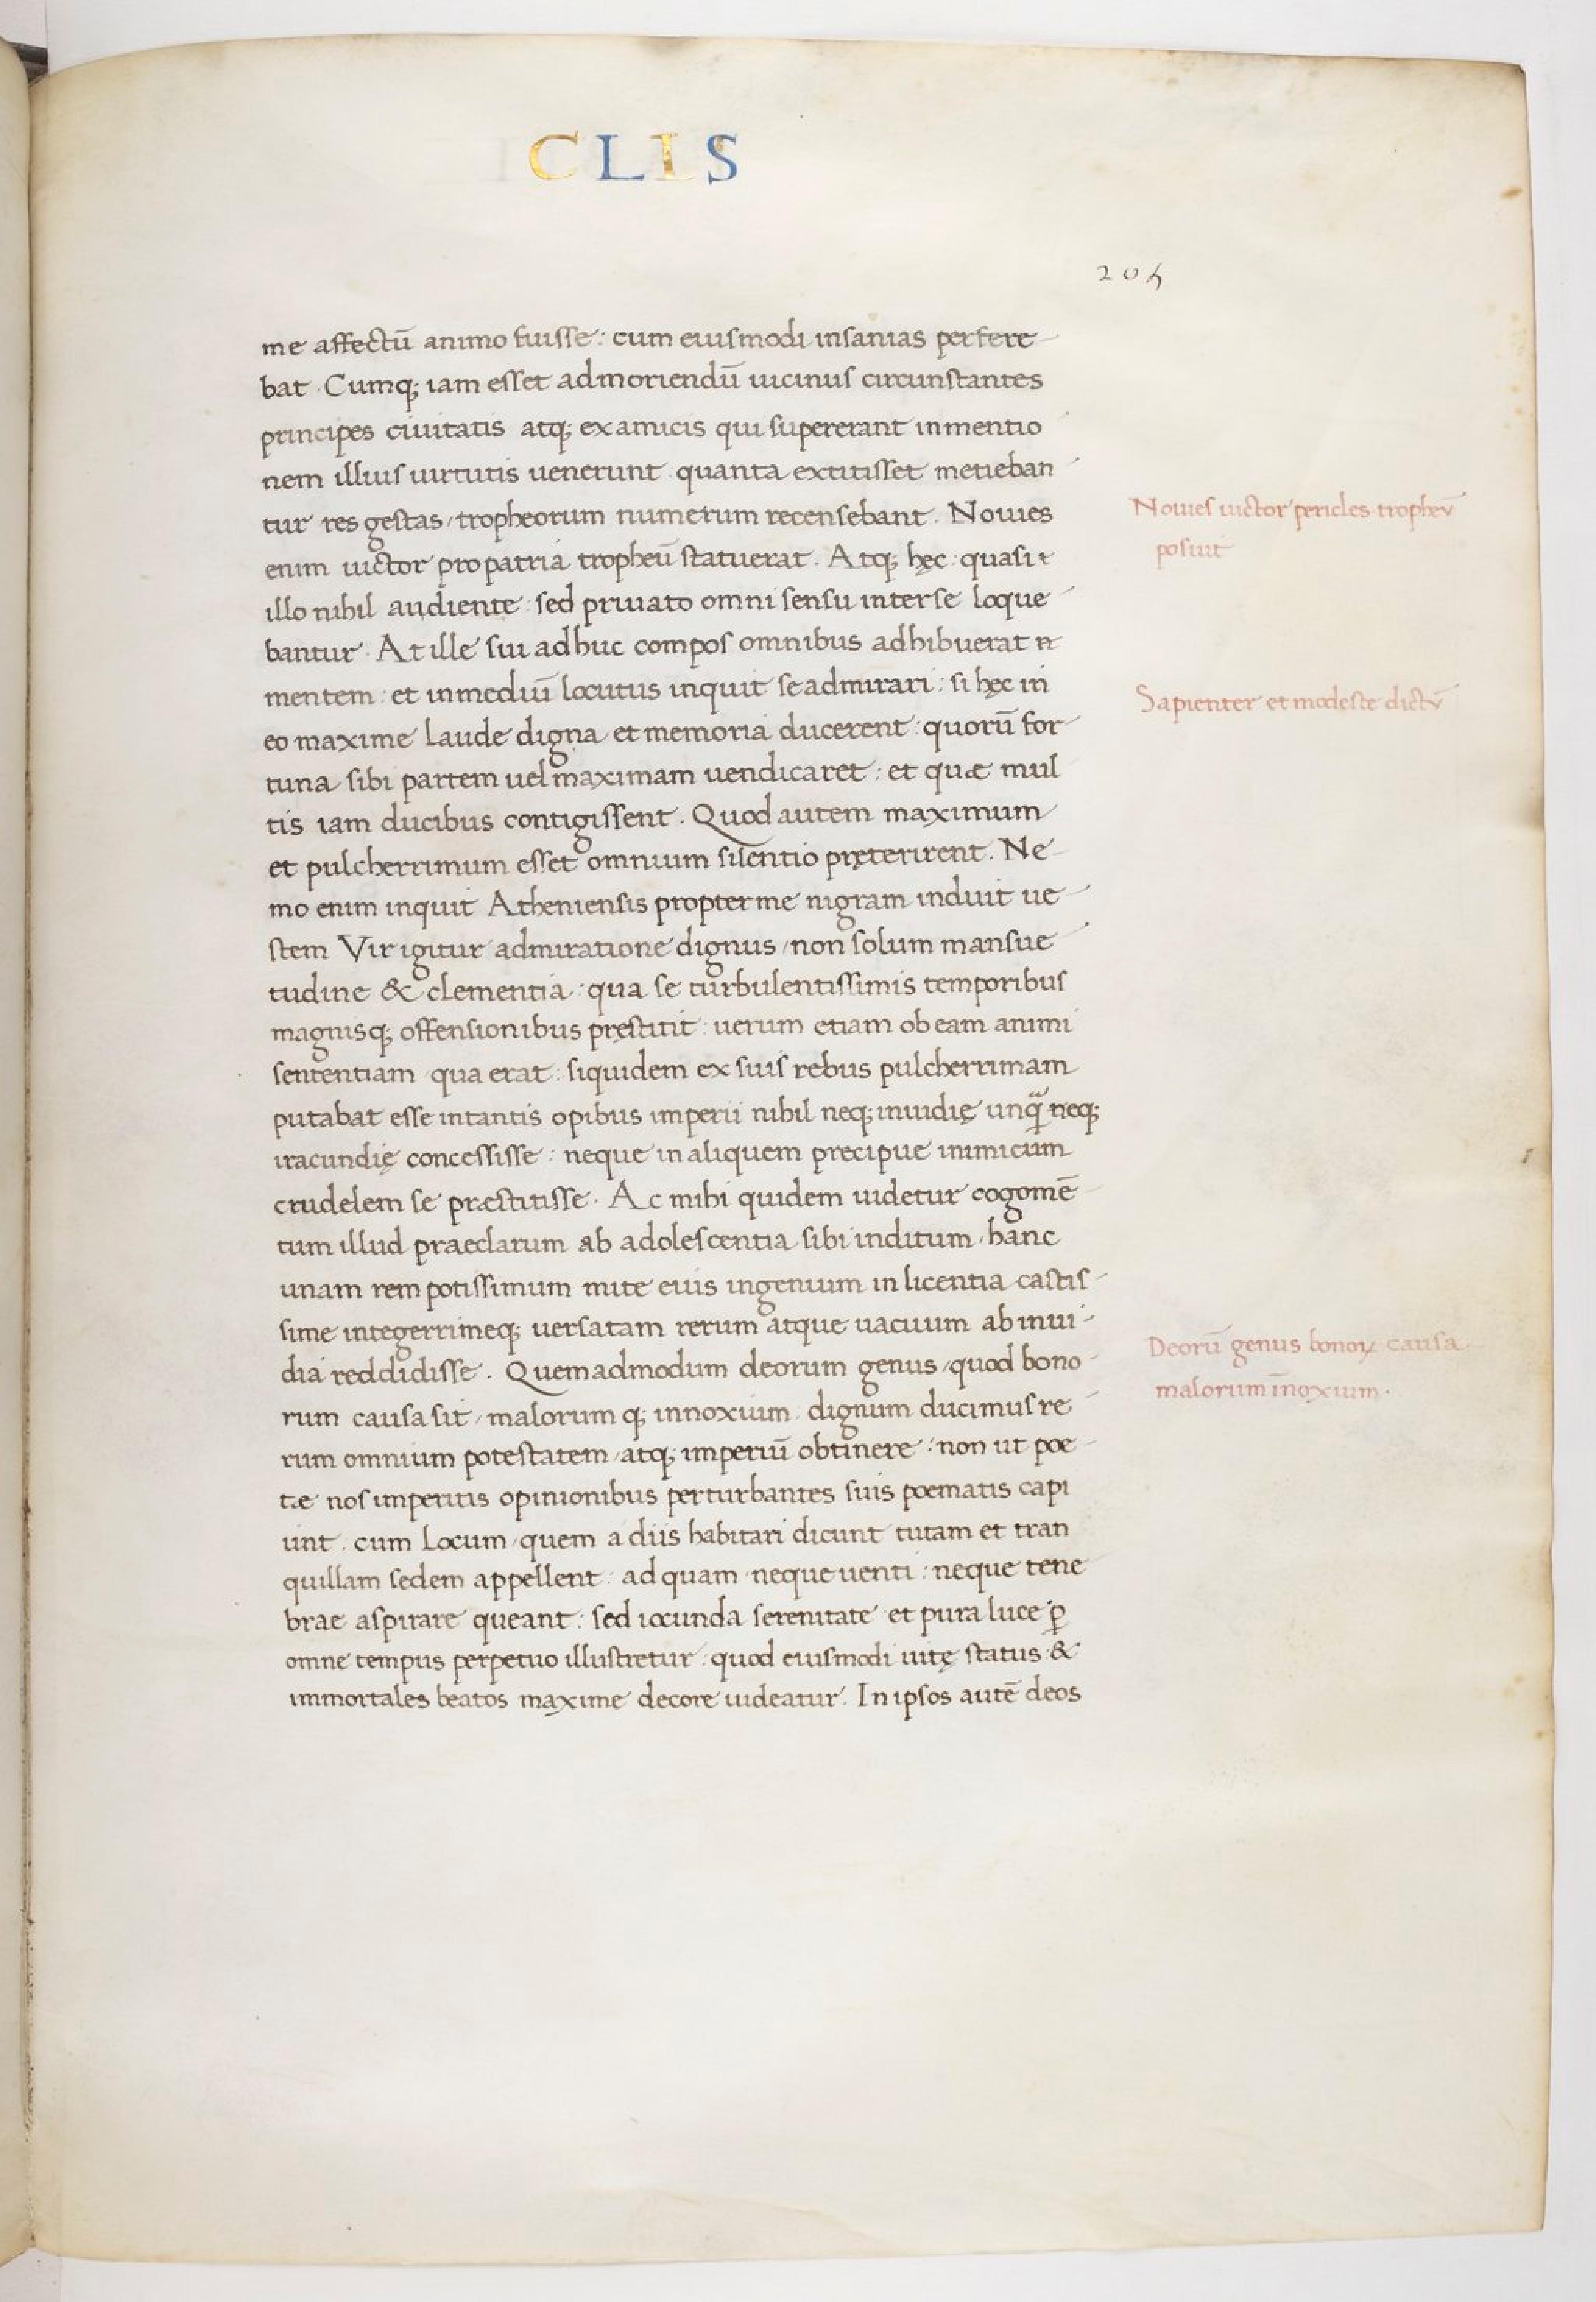 CLIS
205
me affectū animo fuisse: cum eiusmodi insanias perfere
bat. Cumq; iam esset ad moriendū uicinus circunstantes
principes ciuitatis atq; ex amicis qui supererant in mentio
nem illius uirtutis uenerunt quanta extitisset metieban
tur res gestas / tropheorum numerum recensebant. Nouies
enim uictor pro patria tropheū statuerat. Atq; hęc: quasi
illo nihil audiente: sed priuato omni sensu inter se loque
bantur. At ille sui ad huc compos omnibus adhibuerat
mentem: et in mediū locutus inquit se admirari: si hęc in
eo maxime laude digna et memoria ducerent: quorū for
tuna sibi partem uel maximam uendicaret: et quæ mul
tis iam ducibus contigissent. Quod autem maximum
et pulcherrimum esset omnium silentio pręterirent. Ne
mo enim inquit Atheniensis propter me nigram induit ue
stem Vir igitur admiratione dignus / non solum mansue
tudine & clementia: qua se turbulentissimis temporibus
magnisq; offensionibus pręstitit: uerum etiam ob eam animi
sententiam qua erat: siquidem ex suis rebus pulcherrimam
putabat esse in tantis opibus imperii nihil neq; inuidię unq̃ neq;
iracundię concessisse: neque in aliquem precipue inimicum
crudelem se præstitisse. Ac mihi quidem uidetur cogomē
tum illud praeclarum ab adolescentia sibi inditum / hanc
unam rem potissimum mite eius ingenium in licentia castis
sime integerrimeq; uersatam rerum atque uacuum ab inui
dia reddidisse. Quemadmodum deorum genus / quod bono
rum causa sit / malorumq; innoxium dignum ducimus re
rum omnium potestatem / atq; imperiū obtinere: non ut poe
tæ nos imperitis opinionibus perturbantes suis poematis capi
unt. cum locum / quem a diis habitari dicunt tutam et tran
quillam sedem appellent: ad quam neque uenti: neque tene
brae aspirare queant: sed iocunda serenitate et pura luce ꝑ
omne tempus perpetuo illustretur: quod eiusmodi uitę status &
immortales beatos maxime decore uideatur. In ipsos autē deos
Nouies uictor pericles tropheū
posuit
Sapienter et modeste dictū
Deorū genus bonoꝝ causa
malorum īnoxium.